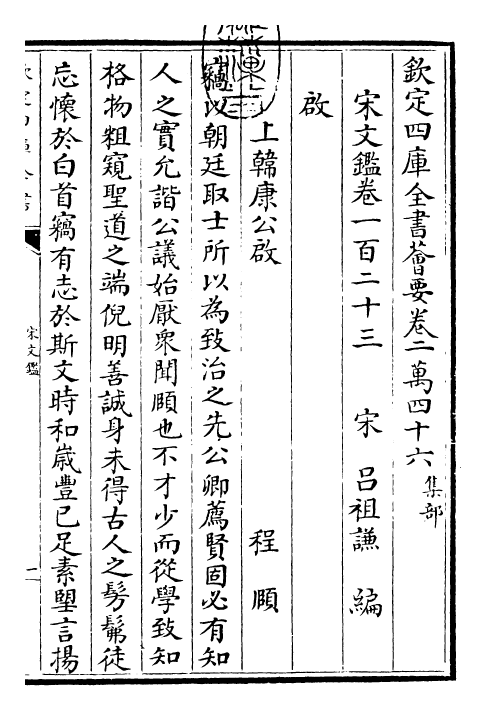 欽定四庫全書薈要卷二萬四十六 集部
宋文鑑卷一百二十三 宋 呂祖謙 編
啟
上韓康公啟 程頤
竊以朝廷取士所以為致治之先公卿薦賢固必有知
人之實允諧公議始厭衆聞頤也不才少而從學致知
格物粗窺聖道之端倪明善誠身未得古人之髣髴徒
忘懷於白首竊有志於斯文時和嵗豐已足素朢言揚
宋文鑑
一